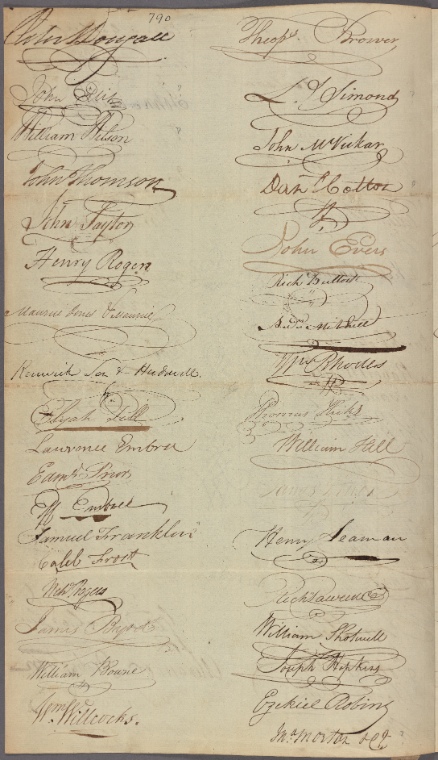 790
John Dougall
John Ellis
William Wilson
John Thomson
John Taylor
Henry Rogers
Renwick Son & Hudswell
Elijah Hill
Lawrence Embree
Edmd. Prior
Eff Embree
Samuel Franklin
Caleb Frost
Neh. Rogers
James Byrd
William Bowne
Wm. Willcocks.
Theops. Brower
L. Simond
John McVickar
Dan Cotton
John Evers
Andw. Mitchell
Wm. Rhodes
Thomas Hicks
William Hill
Henry Seaman
Rich Lawrence
William Shotwell
Joseph Hopkins
Ezekiel Robins
Jno. Morton & Co.